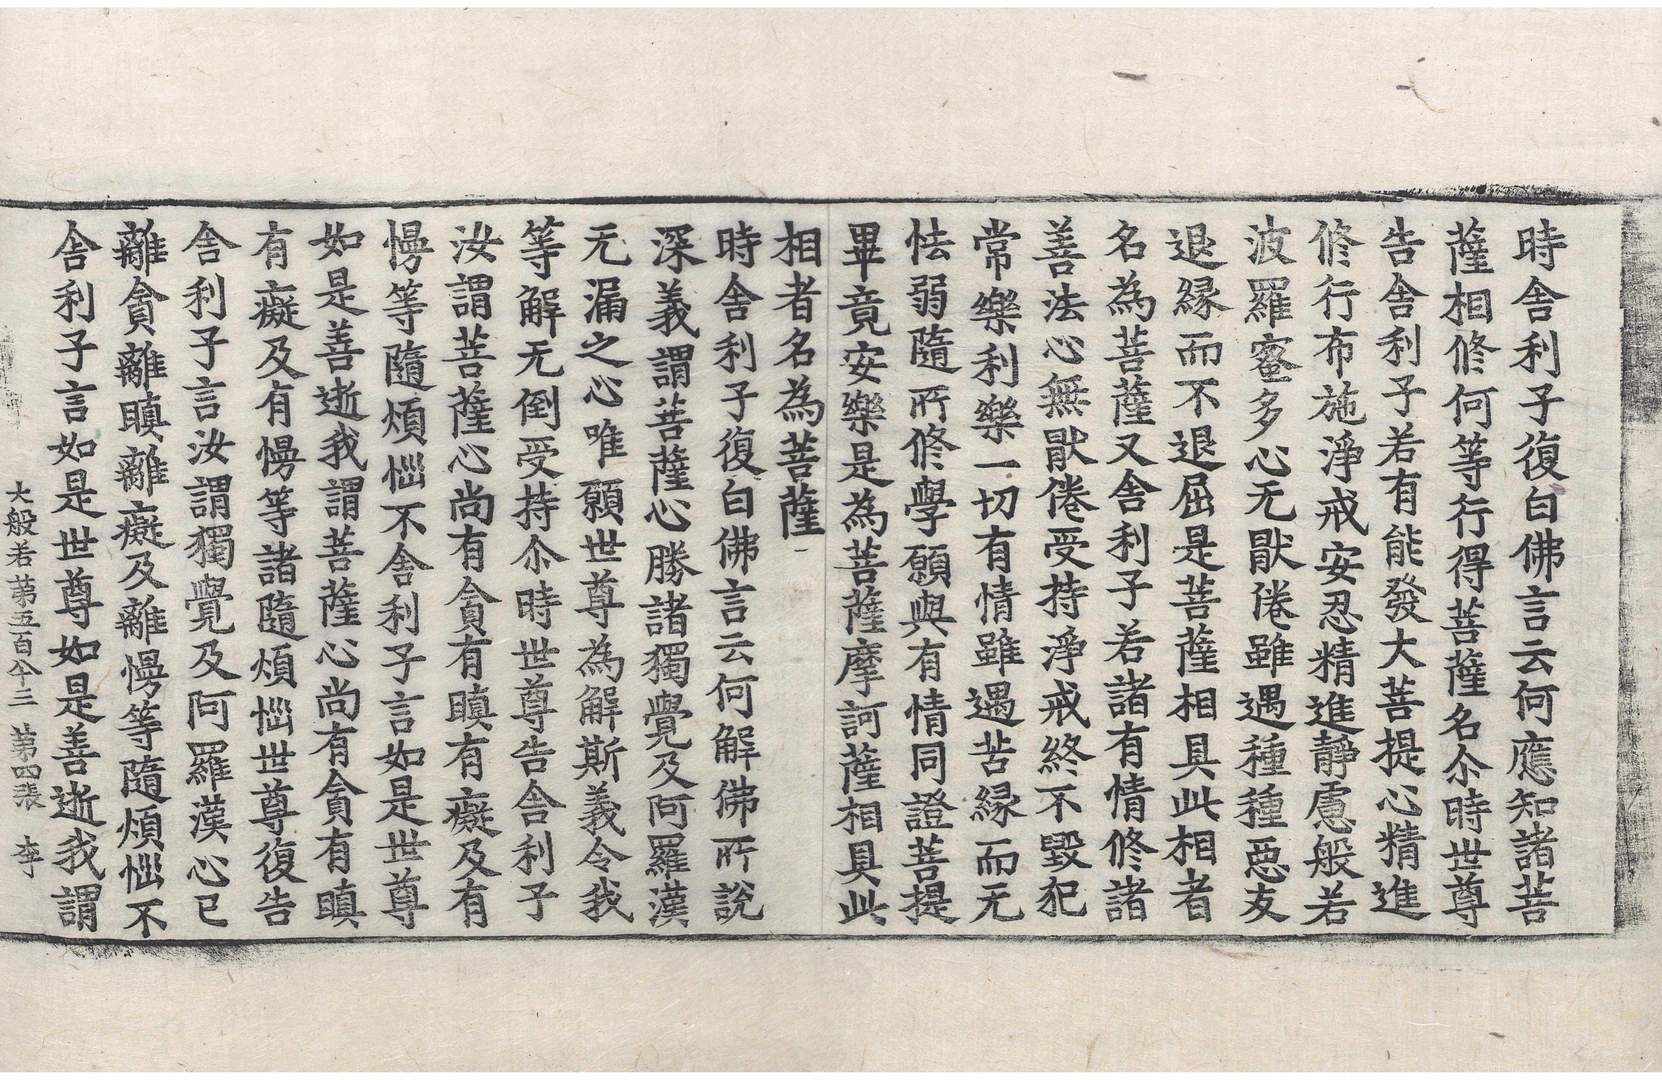 時舍利子復白佛言云何應知諸菩
薩相修何等行得菩薩名尒時世尊
告舍利子若有能發大菩提心精進
修行布施淨戒安忍精進靜慮般若
波羅蜜多心无猒倦雖遇種種惡友
退緣而不退屈是菩薩相具此相者
名為菩薩又舍利子若諸有情修諸
善法心無猒倦受持淨戒終不毀犯
常樂利樂一切有情雖遇苦緣而无
怯弱隨所修學願與有情同證菩提
畢竟安樂是為菩薩摩訶薩相具此
相者名為菩薩
時舍利子復白佛言云何解佛所說
深義謂菩薩心勝諸獨覺及阿羅漢
无漏之心唯願世尊為解斯義令我
等解无倒受持尒時世尊告舍利子
汝謂菩薩心尚有貪有瞋有癡及有
慢等隨煩惱不舍利子言如是世尊
如是善逝我謂菩薩心尚有貪有瞋
有癡及有慢等諸隨煩惱世尊復告
舍利子言汝謂獨覺及阿羅漢心已
離貪離瞋離癡及離慢等隨煩惱不
舍利子言如是世尊如是善逝我謂
大般若苐五百九十三 第四張 李